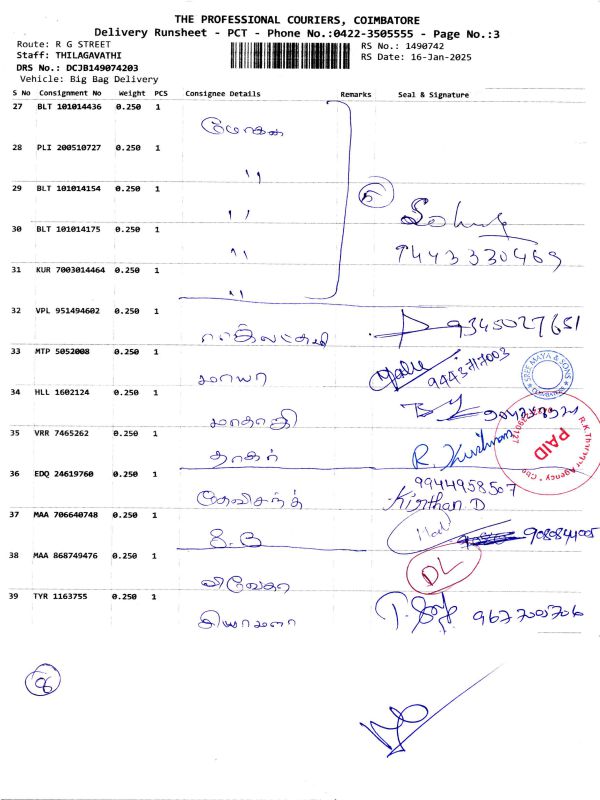 THE PROFESSIONAL COURIERS, COIMBATORE
Delivery Runsheet - PCT - Phone No.:0422-3505555 - Page No.:3
Route: R G STREET
RS No.: 1490742
Staff: THILAGAVATHI
RS Date: 16-Jan-2025
DRS No.: DCJB149074203
Vehicle: Big Bag Delivery
S No Consignment No Weight PCS Consignee Details Remarks Seal & Signature
27 BLT 101014436 0.250 1
28 PLI 200510727 0.250 1
"
29 BLT 101014154 0.250 1
"
5
30 BLT 101014175 0.250 1
"
9443330469
31 KUR 7003014464 0.250 1
"
32 VPL 951494602 0.250 1
9345027651
33 MTP 5052008 0.250 1
மாயா
9443717003
SREE MAYA & SONS
COIMBATORE
34 HLL 1602124 0.250 1
35 VRR 7465262 0.250 1
R. Krishnan
PAID
36 EDQ 24619760 0.250 1
9944958507
Kirthan.D
37 MAA 706640748 0.250 1
9080844005
38 MAA 868749476 0.250 1
DL
39 TYR 1163755 0.250 1
சியாமளா
8